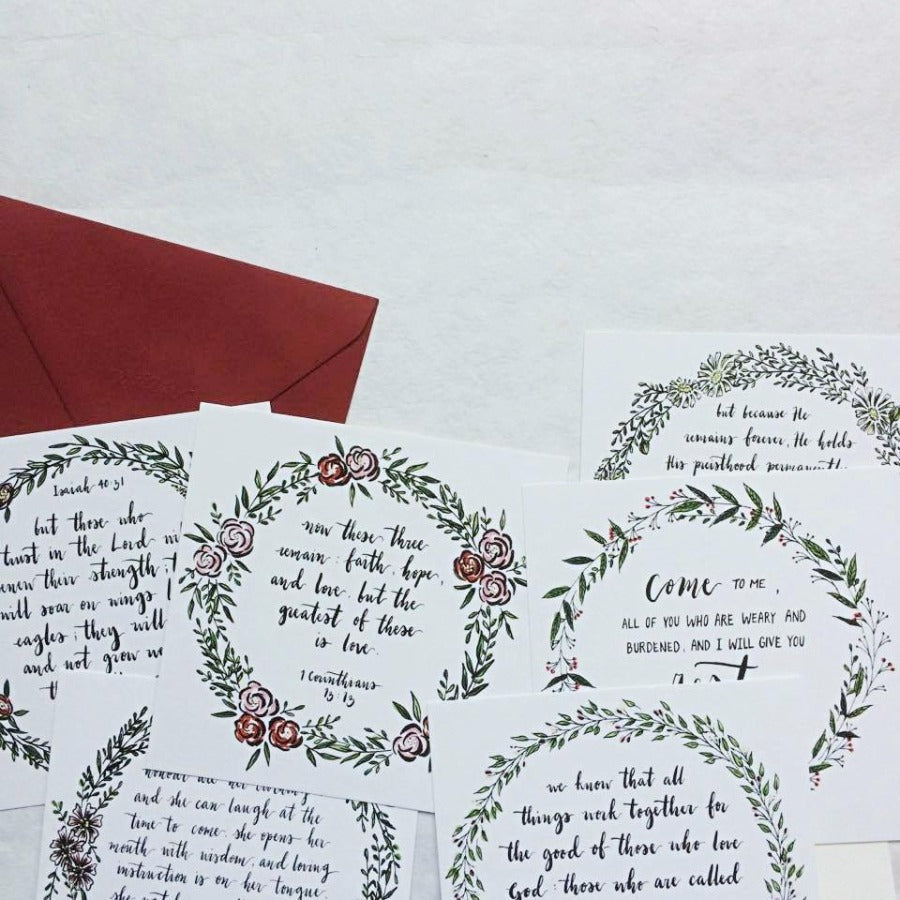 Isaiah 40:31
but those who
trust in the Lord
their strength;
will soar on wings
eagles; they will
and not grow
now these three
remain: faith, hope,
and love. but the
greatest of these
is love.
1 Corinthians
13:13
but because He
remains forever, He holds
His priesthood permanently
come to me,
ALL OF YOU WHO ARE WEARY AND
BURDENED, AND I WILL GIVE YOU
rest
and she can laugh at the
time to come. she opens her
mouth with wisdom, and loving
instruction is on her tongue.
we know that all
things work together for
the good of those who love
God: those who are called